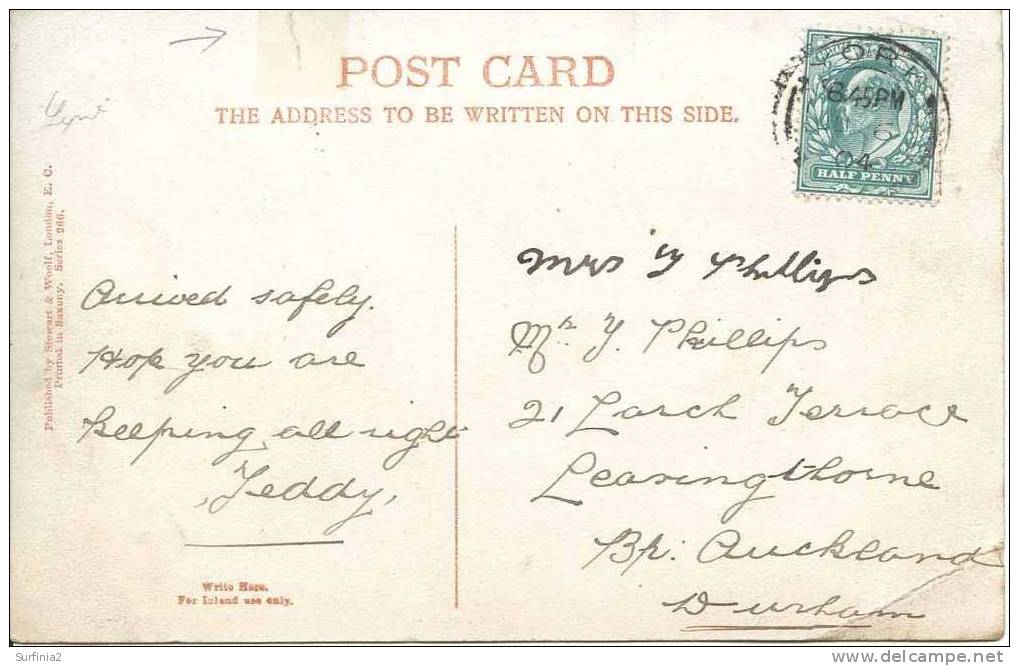 POST CARD
THE ADDRESS TO BE WRITTEN ON THIS SIDE.
YORK
6 45PM
04
HALF PENNY
Published by Stewart & Woolf, London, E. C.
Printed in Saxony. Series 266.
Arrived safely.
Hop you are
keeping all right
Teddy,
Write Here.
For Inland use only.
Mrs Y Phillips
Mr. Y. Phillips
21 Larch Terrace
Leasingthorne
Bp: Auckland
Durham
Surfinia2
delcampe.net